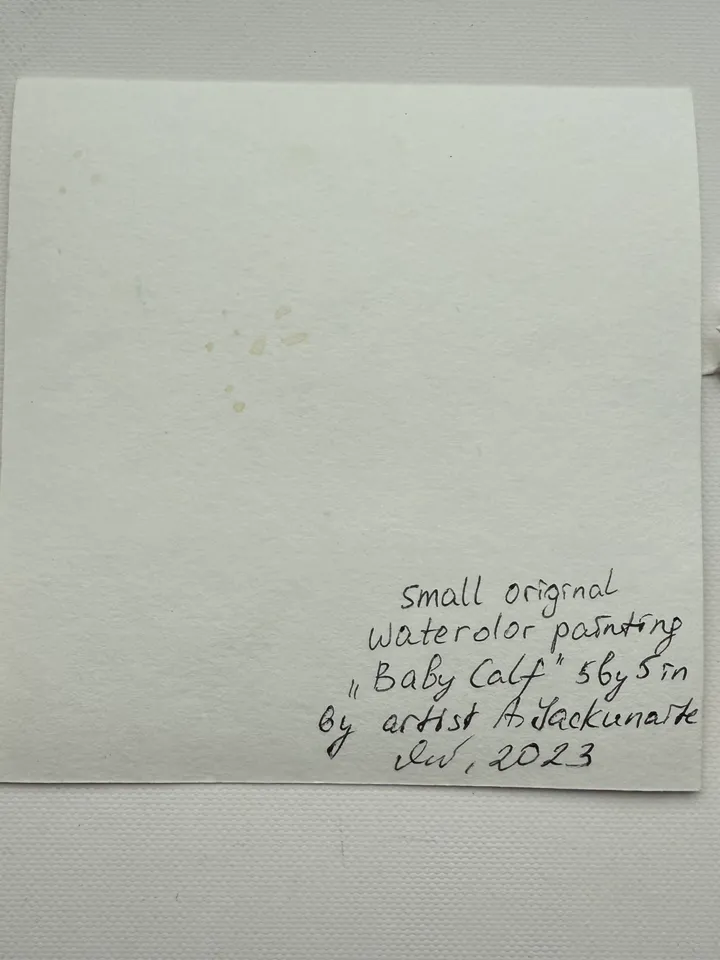 small original
waterolor painting
„Baby Calf" 5by5in
by artist A Jackunaite
, 2023